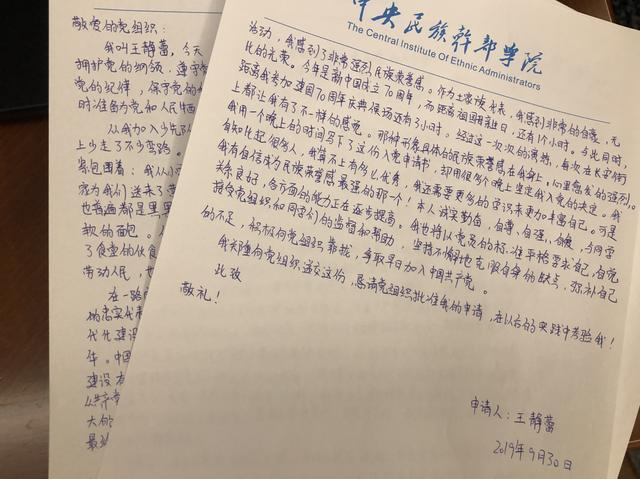 敬爱的党组织:
我叫王静蕾,今天
拥护党的纲领,遵守
党的纪律,保守党的
时准备为党和人民牺
从我加入少先队
上少走了不少弯路。
紧包围着:我从小
也普遍都是黑
款的面包。
了食堂的伙食
劳动人民,也
在一路
代化建设
年。中国
建设有
大的
最
中央民族干部学院
The Central Institute Of Ethnic Administrators
活动,我感到了非常强烈民族荣誉感。作为土家族代表,我感到非常的自豪,无
比的光荣。今年是新中国成立70周年,而距离祖国母亲生日,还有1个小时。与此同时,
距离我参加建国70周年庆典侯场还有3小时。经过这一次次的演练,每次在长安街
上都让我有了不一样的感觉。那种形象具体的民族荣誉感在我身上,心里愈发的强烈。
我用一个晚上的时间写下了这份入党申请书,却用很多个晚上坚定我入党的决定。我
自知比起很多人,我算不上有多么优秀,我还需要更多的学识来更加丰富自己。可是
我有自信成为民族荣誉感最强的那一个!本人诚实勤奋,自尊,自强,自信,与同学
关系良好,各方面的能力正在逐步提高。我也将以党员的标准严格要求自己,自觉
接受党组织和同学们的监督和帮助,坚持不懈地克服自身的缺点,弥补自己
的不足,积极向党组织靠拢,争取早日加入中国共产党。
我郑重向党组织递交这份,恳请党组织批准我的申请,在以后的实践中考验我!
此致
敬礼!
申请人:王静蕾
2019年9月30日